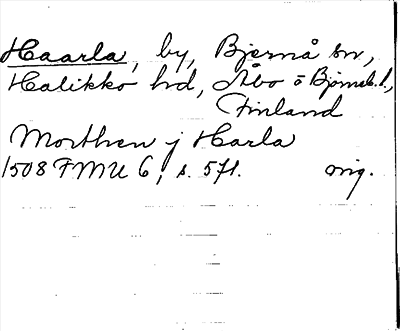 Haarla, by, Bjernå sn,
Halikko hd, Åbo o Björneb. l.,
Finland
Morthen j Harla
1508 FMU 6, s. 5f1. orig.